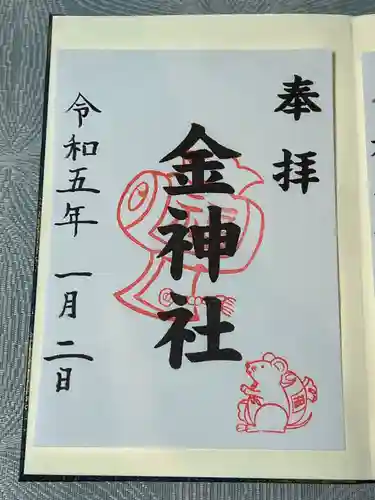 奉拝
金神社
令和五年 一月二日